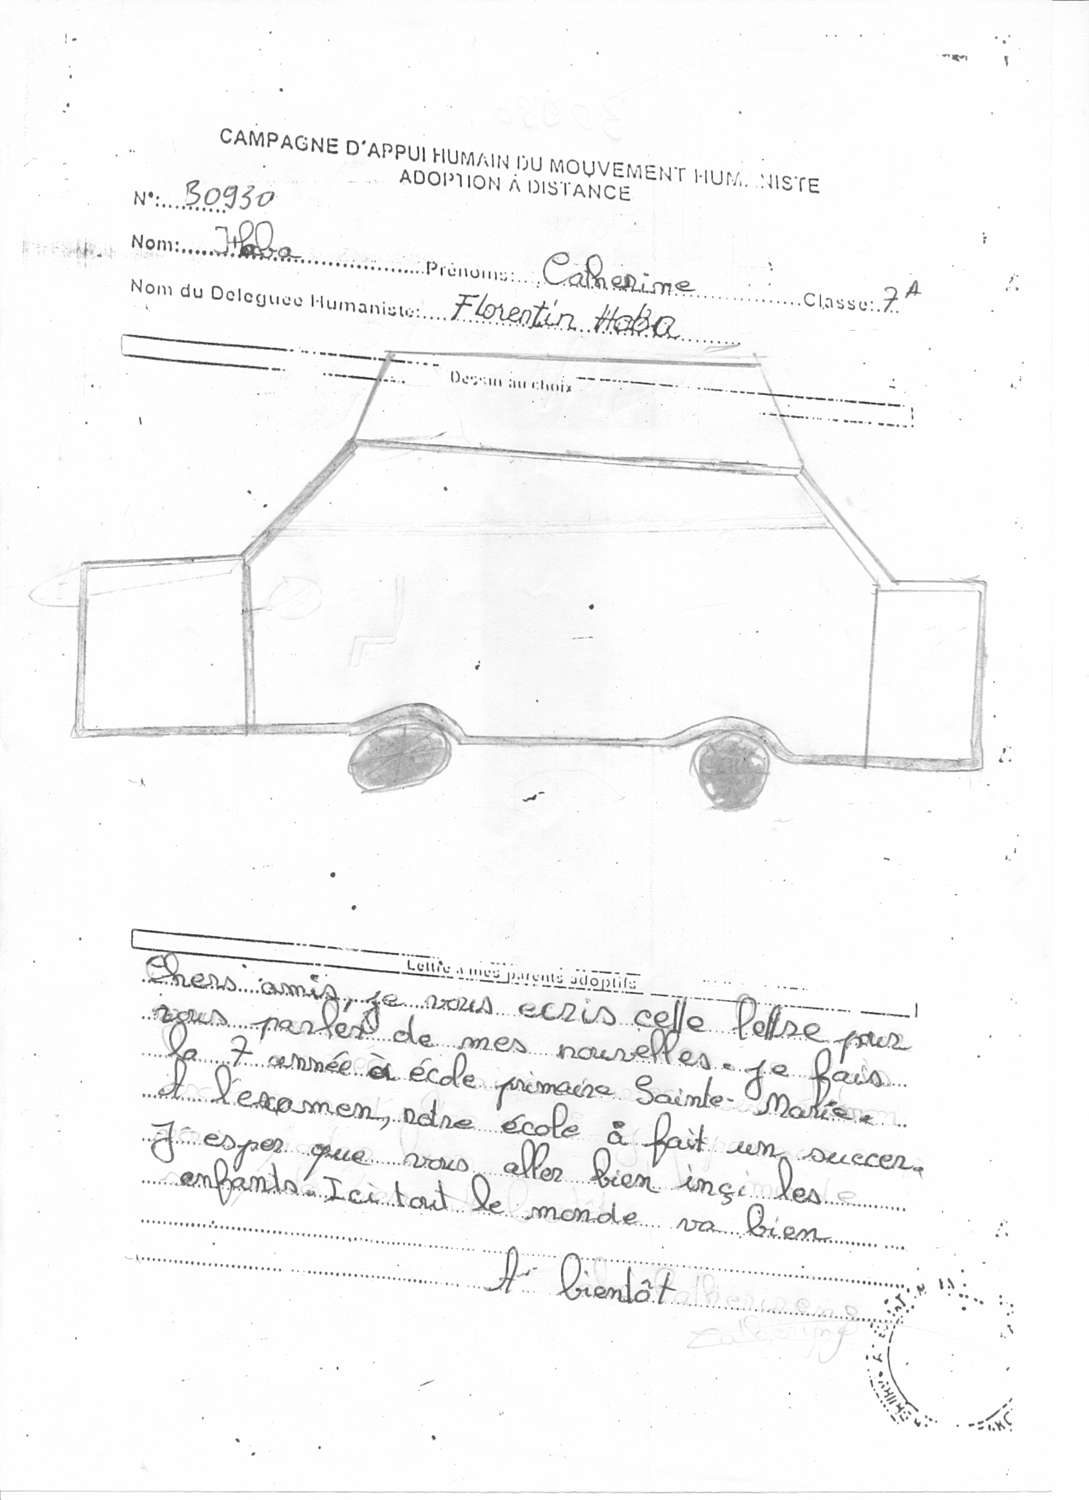 CAMPAGNE D'APPUI HUMAIN DU MOUVEMENT HUMANISTE
ADOPTION À DISTANCE
N°: 30930
Nom: Haba Prénoms: Catherine Classe: 7 A
Nom du Deleguee Humaniste: Florentin Haba
Dessin au choix
Lettre a mes parents adoptifs
Chers amis, je vous ecris cette lettre pour
vous parler de mes nouvelles. je fais
la 7 année à école primaire Sainte-Marie.
A l'examen, notre école à fait un succer.
J'esper que vous aller bien inçi les
enfants. Ici tout le monde va bien
A bientôt